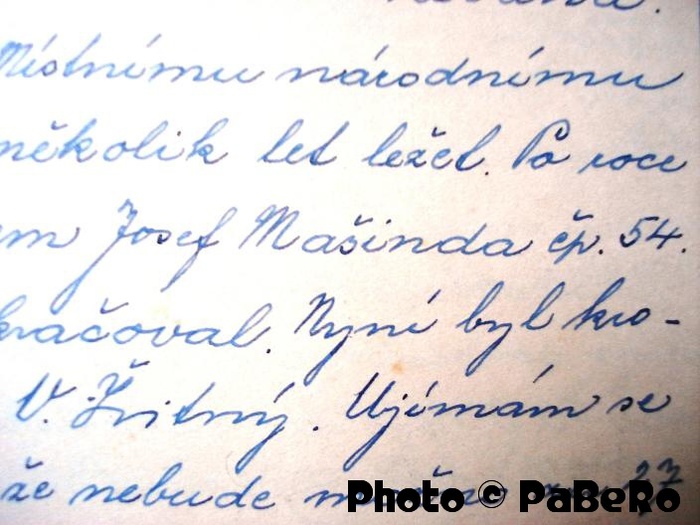 Místnímu národnímu
několik let ležet. Po roce
em Josef Mašinda čp. 54.
kračoval. Nyní byl kro-
V. Žvitný. Ujímám se
že nebude 27
Photo © PaBeRo